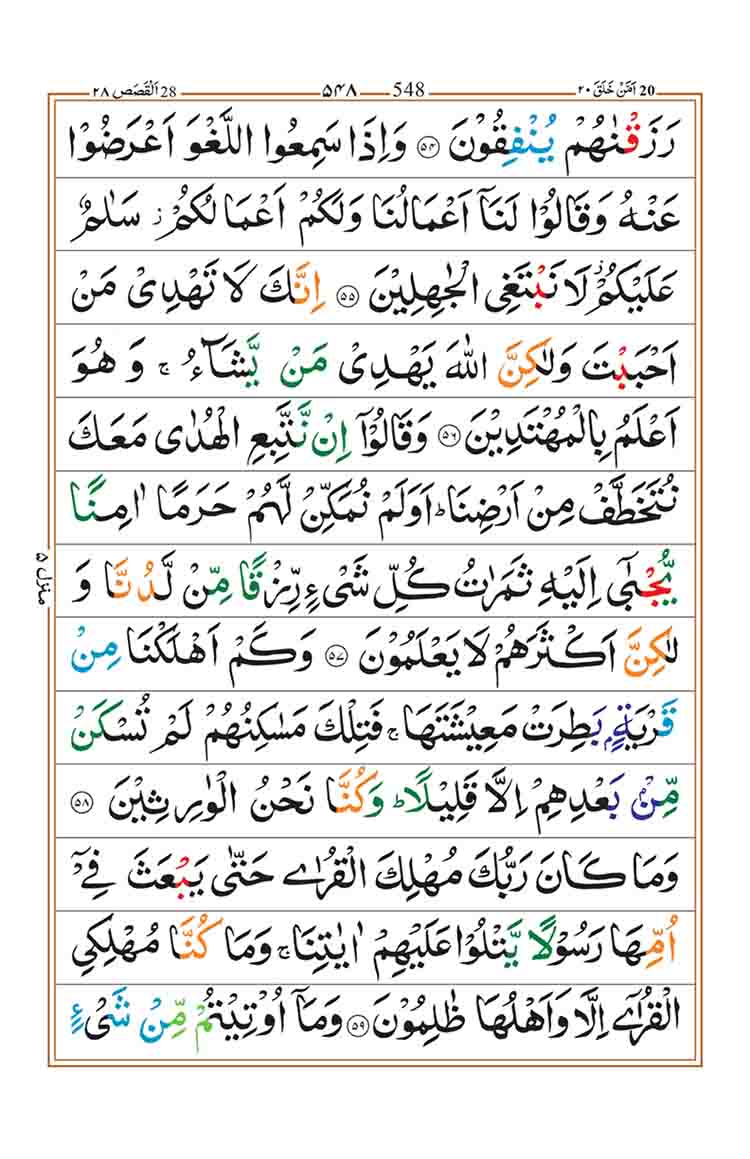 20 اَمَّنْ خَلَقَ ۲۰ 548 ۵۴۸ 28 اَلْقَصَص ۲۸
رَزَقْنٰهُمْ يُنْفِقُوْنَ ۝۵۴ وَاِذَا سَمِعُوا اللَّغْوَ اَعْرَضُوْا
عَنْهُ وَقَالُوْا لَنَاۤ اَعْمَالُنَا وَلَكُمْ اَعْمَالُكُمْ ز سَلٰمٌ
عَلَيْكُمْ ز لَا نَبْتَغِى الْجٰهِلِيْنَ ۝۵۵ اِنَّكَ لَا تَهْدِىْ مَنْ
اَحْبَبْتَ وَلٰكِنَّ اللّٰهَ يَهْدِىْ مَنْ يَّشَآءُ ج وَ هُوَ
اَعْلَمُ بِالْمُهْتَدِيْنَ ۝۵۶ وَقَالُوْۤا اِنْ نَّتَّبِعِ الْهُدٰى مَعَكَ
نُتَخَطَّفْ مِنْ اَرْضِنَا ط اَوَلَمْ نُمَكِّنْ لَّهُمْ حَرَمًا اٰمِنًا
يُّجْبٰٓى اِلَيْهِ ثَمَرٰتُ كُلِّ شَىْءٍ رِّزْقًا مِّنْ لَّدُنَّا وَ
لٰكِنَّ اَكْثَرَهُمْ لَا يَعْلَمُوْنَ ۝۵۷ وَكَمْ اَهْلَكْنَا مِنْ
قَرْيَةٍۭ بَطِرَتْ مَعِيْشَتَهَا ج فَتِلْكَ مَسٰكِنُهُمْ لَمْ تُسْكَنْ
مِّنْۢ بَعْدِهِمْ اِلَّا قَلِيْلًا ط وَكُنَّا نَحْنُ الْوٰرِثِيْنَ ۝۵۸
وَمَا كَانَ رَبُّكَ مُهْلِكَ الْقُرٰى حَتّٰى يَبْعَثَ فِىْۤ
اُمِّهَا رَسُوْلًا يَّتْلُوْا عَلَيْهِمْ اٰيٰتِنَا ج وَمَا كُنَّا مُهْلِكِى
الْقُرٰٓى اِلَّا وَاَهْلُهَا ظٰلِمُوْنَ ۝۵۹ وَمَاۤ اُوْتِيْتُمْ مِّنْ شَىْءٍ
منزل ۵